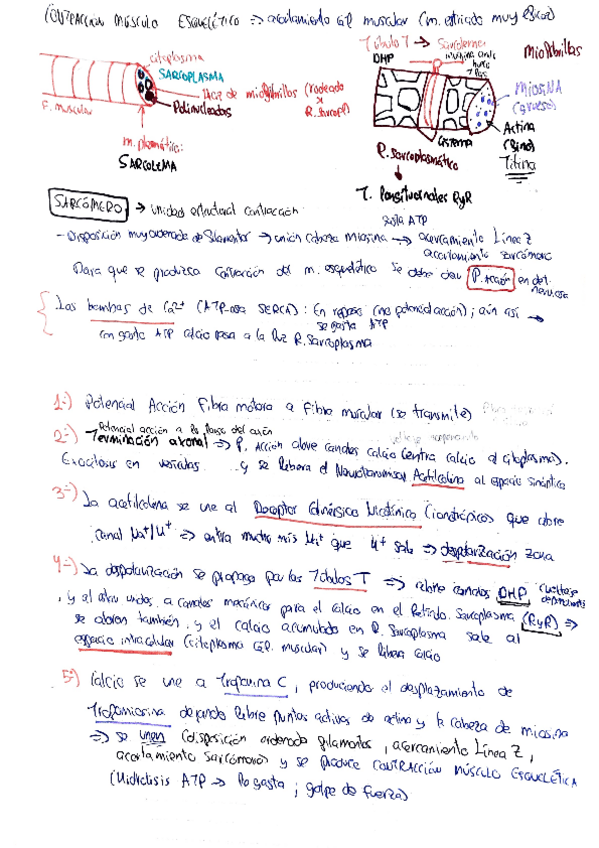 CONTRACCIÓN MÚSCULO ESQUELÉTICO => acortamiento cél muscular (m. estriado muy eficaz)
citoplasma
SARCOPLASMA
Haz de miofibrillas (rodeado x R. Sarcopl)
Polinucleados
F. muscular
m. plasmática:
SARCOLEMA
Túbulo T → Sarcolema
DHP
Miofibrillas
MIOSINA
(grueso)
Actina
(fino)
Titina
Cisterna
R. Sarcoplasmático
T. longitudinales RyR
gasta ATP
SARCÓMERO → unidad estructural contracción
- Disposición muy ordenada de filamentos → unión cabeza miosina → acercamiento Línea Z
acortamiento sarcómero
Para que se produzca contracción del m. esquelético se debe dar P. acción en det.
neurona
Las bombas de Ca2+ (ATPasa SERCA): En reposo (no potencial acción); aún así →
se gasta ATP
con gasto ATP calcio pasa a la luz R. Sarcoplasma
1:-) Potencial Acción Fibra motora a Fibra muscular (se transmite)
Potencial acción a lo largo del axón
2:-) Terminación axonal => P. Acción abre canales calcio (entra calcio al citoplasma).
Exocitosis en vesículas y se libera el Neurotransmisor Acetilcolina al espacio sináptico
3:-) La acetilcolina se une al Receptor Colinérgico Nicotínico (ionotrópicos) que abre
canal Na+/K+ => entra mucho más Na+ que K+ sale => despolarización zona
4:-) La despolarización se propaga por los Túbulos T => abre canales DHP (voltaje dependiente)
, y al estar unidos a canales mecánicos para el calcio en el Retículo Sarcoplasma (RyR) =>
se abren también, y el calcio acumulado en R. Sarcoplasma sale al
espacio intracelular (citoplasma cél. muscular) y se libera calcio
5:-) Calcio se une a Troponina C, produciendo el desplazamiento de
Tropomiosina dejando libre puntos activos de actina y la cabeza de miosina
=> se unen (disposición ordenada filamentos, acercamiento Línea Z,
acortamiento sarcómero) y se produce CONTRACCIÓN MÚSCULO ESQUELÉTICA
(Hidrólisis ATP → lo gasta; golpe de fuerza)